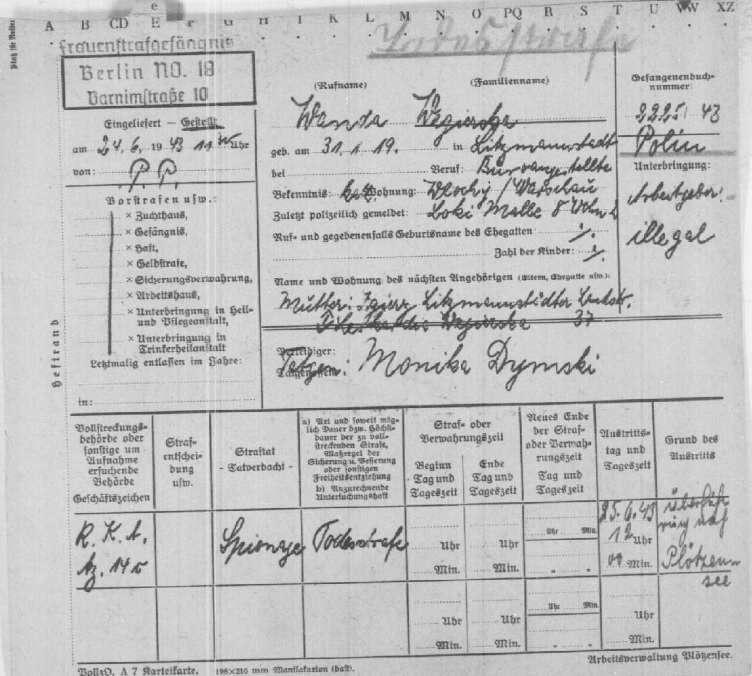 A B CD E F G H I K L M N O PQ R S T U VW XZ
Todesstrafe
Frauenstrafgefängnis
Berlin NO. 18
Barnimstraße 10
Eingeliefert – Gestellt
am 24. 6. 1943 11 Uhr
von:
Vorstrafen usw.:
× Zuchthaus,
× Gefängnis,
× Haft,
× Geldstrafe,
× Sicherungsverwahrung,
× Arbeitshaus,
× Unterbringung in Heil-
und Pflegeanstalt,
× Unterbringung in
Trinkerheilanstalt
Letztmalig entlassen im Jahre:
in:
Heftrand
(Rufname) (Familienname)
Wanda Wegierska
geb. am 31. 1. 19. in Litzmannstadt
bei Beruf: Büroangestellte
Bekenntnis: Wohnung: Wlochy / Warschau
Zuletzt polizeilich gemeldet: Loki Malle 8
Ruf- und gegebenenfalls Geburtsname des Ehegatten ./.
Zahl der Kinder: ./.
Name und Wohnung des nächsten Angehörigen (Eltern, Ehegatte usw.):
Mutter: Zgierz Litzmannstädter
Wegierska 37
Verteidiger:
Monika Dymski
Gefangenenbuch-
nummer:
2225/43
Polin
Unterbringung:
Arbeitgeber:
illegal
Vollstreckungs-
behörde oder
sonstige um
Aufnahme
ersuchende
Behörde
Geschäftszeichen
Straf-
entschei-
dung
usw.
Straftat
- Tatverdacht -
a) Art und soweit mög-
lich Dauer bzw. Höchst-
dauer der zu voll-
streckenden Strafe,
Maßregel der
Sicherung u. Besserung
oder sonstigen
Freiheitsentziehung
b) Anzurechnende
Untersuchungshaft
Straf- oder
Verwahrungszeit
Beginn
Tag und
Tageszeit
Ende
Tag und
Tageszeit
Neues Ende
der Straf-
oder Verwah-
rungszeit
Tag und
Tageszeit
Austritts-
tag und
Tageszeit
Grund des
Austritts
R. K. A.
Az. 14
Spionage
Todesstrafe
Uhr
Min.
Uhr
Min.
Uhr Min.
" "
25. 6. 43
12 Uhr
00 Min.
Überfüh-
rung nach
Plötzen-
see
Uhr
Min.
Uhr
Min.
Uhr Min.
" "
Uhr
Min.
VollzO. A 7 Karteikarte. 198×210 mm Manilakarton (haft).
Arbeitsverwaltung Plötzensee.